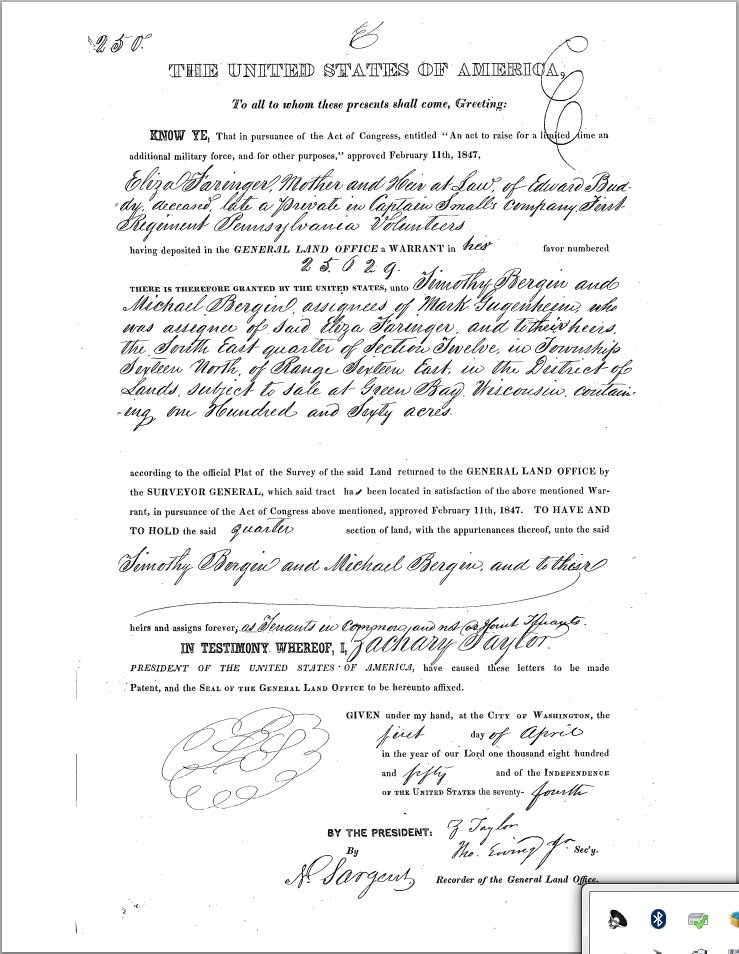 250.
THE UNITED STATES OF AMERICA,
To all to whom these presents shall come, Greeting:
KNOW YE, That in pursuance of the Act of Congress, entitled "An act to raise for a limited time an
additional military force, and for other purposes," approved February 11th, 1847,
Eliza Faringer, Mother and Heir at Law, of Edward Bud-
-dy, deceased, late a Private in Captain Small's Company First
Regiment Pennsylvania Volunteers
having deposited in the GENERAL LAND OFFICE a WARRANT in her favor numbered
25.629.
THERE IS THEREFORE GRANTED BY THE UNITED STATES, unto Timothy Bergin and
Michael Bergin, assignees of Mark Gugenheim, who
was assignee of said Eliza Faringer, and to their heirs,
the South East quarter of Section Twelve, in Township
Sixteen North, of Range Sixteen East, in the District of
Lands, subject to sale at Green Bay, Wisconsin, contain-
-ing, one Hundred and Sixty acres.
according to the official Plat of the Survey of the said Land returned to the GENERAL LAND OFFICE by
the SURVEYOR GENERAL, which said tract has been located in satisfaction of the above mentioned War-
rant, in pursuance of the Act of Congress above mentioned, approved February 11th, 1847. TO HAVE AND
TO HOLD the said quarter section of land, with the appurtenances thereof, unto the said
Timothy Bergin and Michael Bergin, and to their
heirs and assigns forever, as Tenants in Common, and not as Joint Tenants.
IN TESTIMONY WHEREOF, I, Zachary Taylor.
PRESIDENT OF THE UNITED STATES OF AMERICA, have caused these letters to be made
Patent, and the SEAL OF THE GENERAL LAND OFFICE to be hereunto affixed.
GIVEN under my hand, at the CITY OF WASHINGTON, the
first day of April
in the year of our Lord one thousand eight hundred
and fifty and of the INDEPENDENCE
OF THE UNITED STATES the seventy-fourth
BY THE PRESIDENT: Z. Taylor
By Tho. Ewing Jr. Sec'y.
N. Sargent Recorder of the General Land Office.